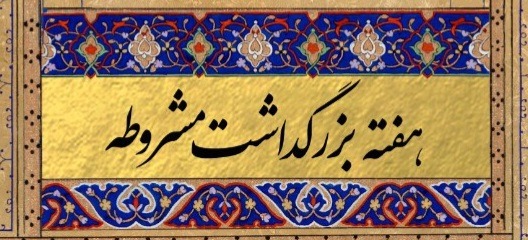 هفته بزرگداشت مشروطه